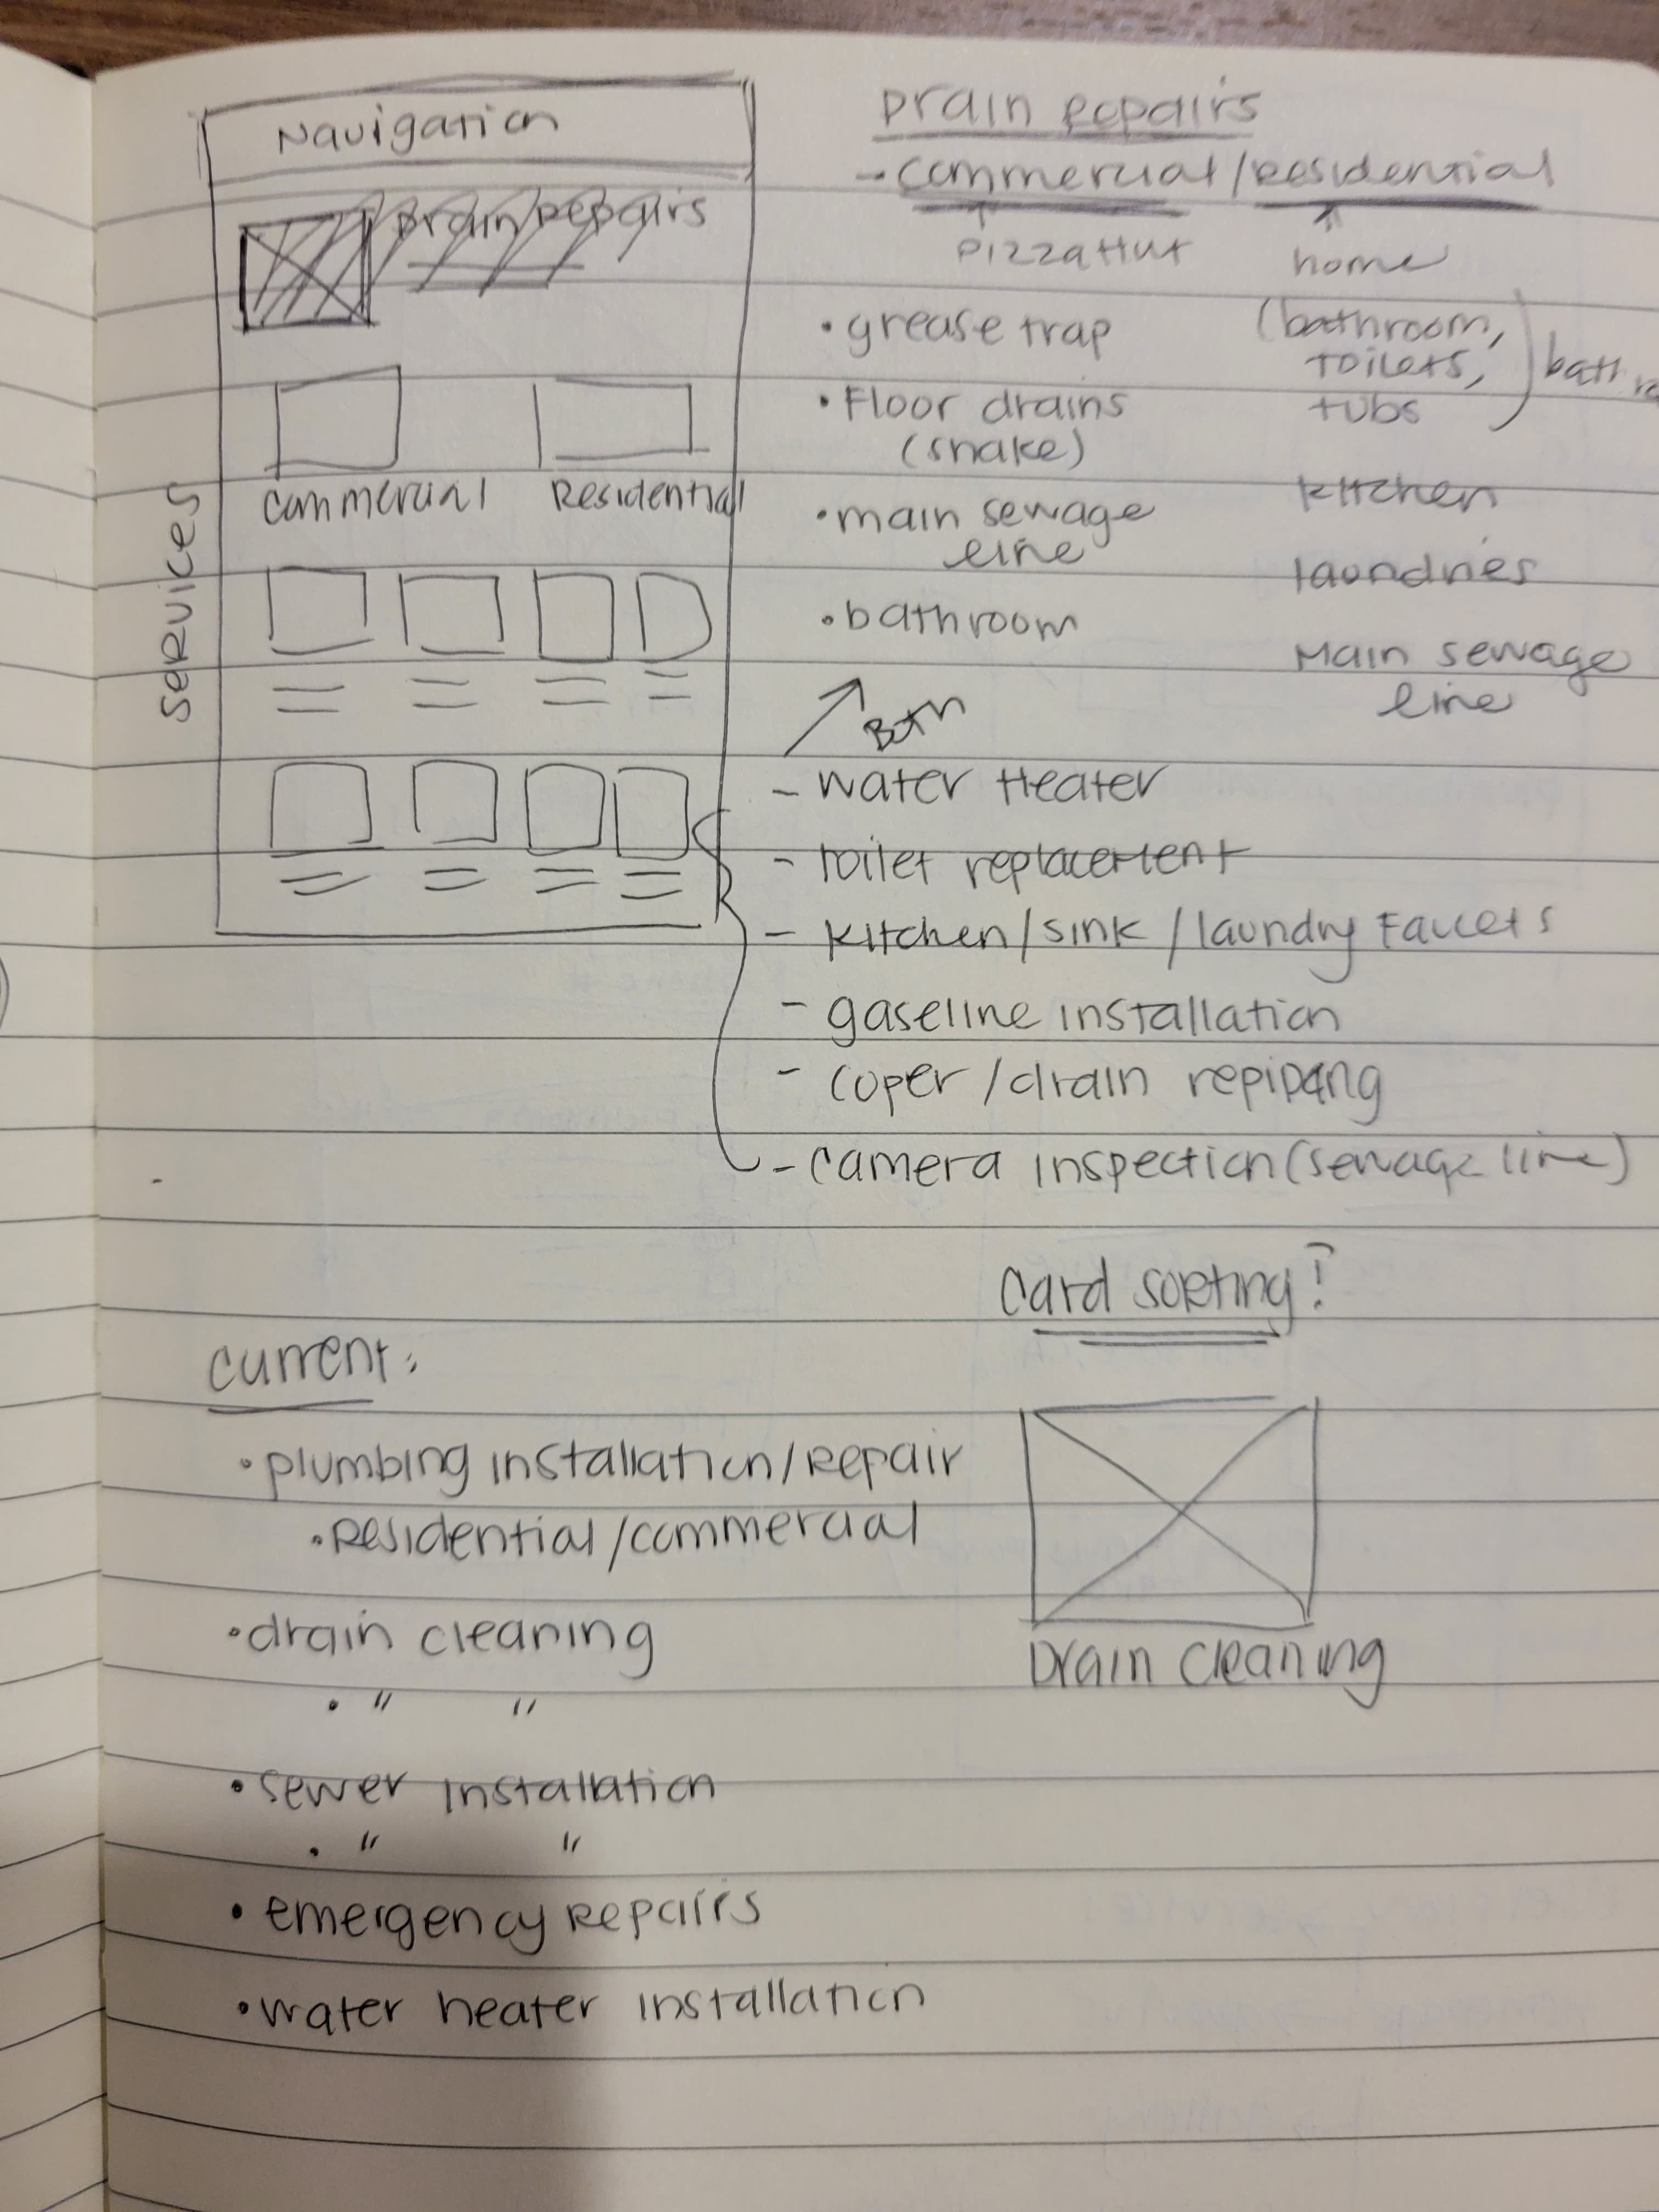 Navigation
Drain Repairs
Commercial
Residential
Services
Drain Repairs
- Commercial/Residential
Pizza Hut
home
• grease trap
• Floor drains
(snake)
• main sewage
line
• bathroom
(bathroom,
toilets,
tubs
kitchen
laundries
Main sewage
line
Both
- Water Heater
- toilet replacement
- kitchen/sink/laundry Faucets
- gaseline installation
- coper/drain repiping
- camera inspection (sewage line)
Card sorting!
Current:
• plumbing installation/Repair
• Residential/commercial
• drain cleaning
• " "
• sewer installation
• " "
• emergency Repairs
• water heater installation
Drain Cleaning